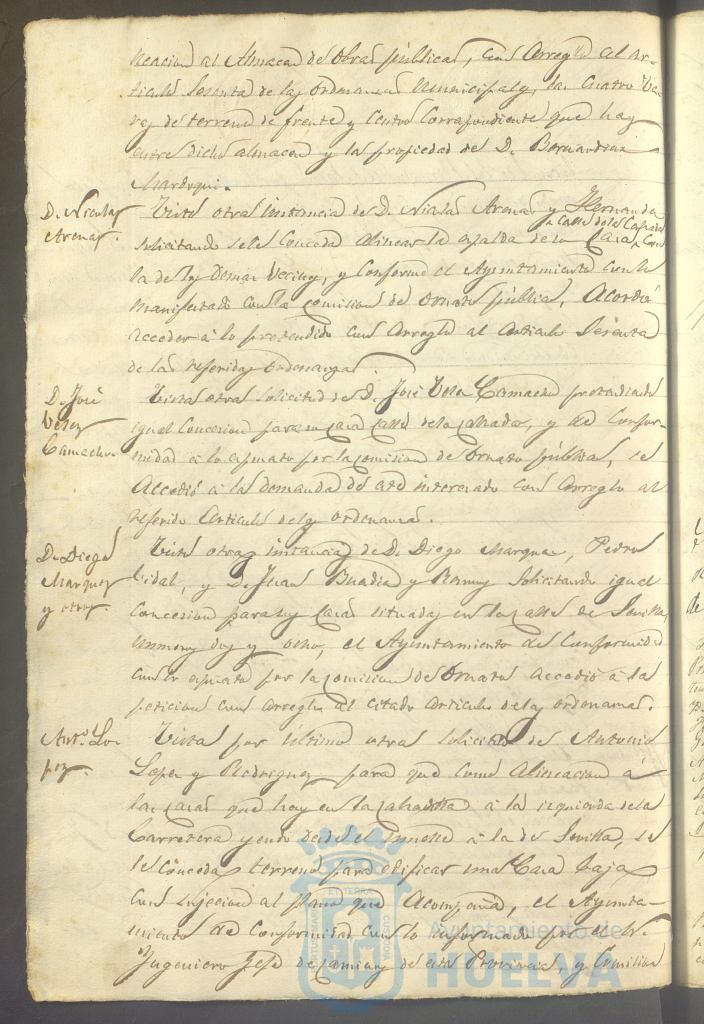 neacion al Almacen de Obras públicas, con arreglo al ar-
ticulo sesenta de las ordenanzas Municipales, las cuatro va-
ras de terreno de frente y centro correspondiente que hay
entre dicho almacen y la propiedad de D. Bernardino
Marduqui.
D. Nicolas
Arenas.
Vista otra instancia de D. Nicolas Arenas y Hernandez
solicitando se le conceda alinear la espalda de su Casa con
a Calle de la Calzada
la de los demas vecinos, y conforme el Ayuntamiento con lo
manifestado con la comision de Ornato público, Acordó
acceder á lo pretendido con arreglo al articulo Sesenta
de las referidas ordenanzas.
D. José
Velez
Camacho
Vista otra solicitud de D. José Velez Camacho pretendiendo
igual concesion para su casa calle de la calzada, y de confor-
midad á lo opinado por la comision de Ornato público, se
Accedió á la demanda de este interesado con arreglo al
referido articulo de las ordenanzas.
D. Diego
Marquez
y otros.
Vistas otras instancias de D. Diego Marquez, Pedro
Vidal, y D. Juan y Ramos solicitando igual
concesion para sus casas situadas en la calle de Sevilla,
numeros dos y ocho, el Ayuntamiento de conformidad
con lo opinado por la comision de Ornato accedió á la
peticion con arreglo al citado articulo de las ordenanzas.
Antº. Lo-
pez.
Vista por último otra solicitud de Antonio
Lopez y Rodriguez para que como alineacion á
las casas que hay en la calzadilla á la izquierda de la
Carretera yendo desde el Muelle á la de Sevilla, se
le conceda terreno para edificar una Casa baja
con sujecion al plano que Acompaña, el Ayunta-
miento de conformidad con lo informado por el Sr.
Ingeniero Jefe de caminos de esta Provincia, y Comision
Ayuntamiento de
HUELVA